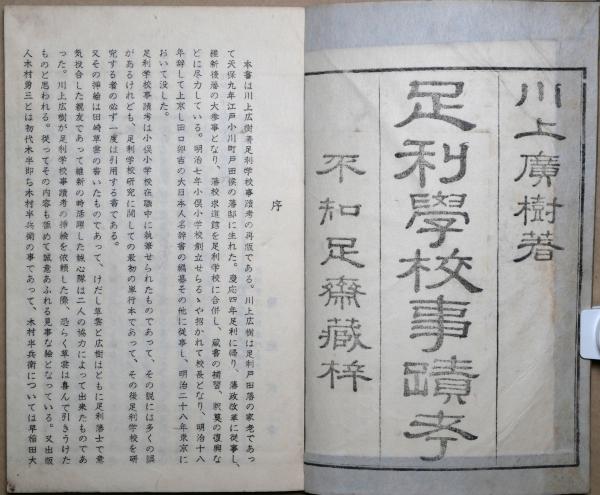 川上廣樹著
足利學校事蹟考
不知足齋藏梓
序
本書は川上広樹著足利学校事蹟考の再版である。川上広樹は足利戸田藩の家老であっ
て天保九年江戸小川町戸田侯の藩邸に生れた。慶応四年足利に帰り、藩政改革に従事し、
維新後藩の大参事となり、藩校求道館を足利学校に合併し、蔵書の補習、釈奠の復興な
どに尽力している。明治七年小俣小学校創立せらるゝや招かれて校長となり、明治十八
年辞して上京し田口卯吉の大日本人名辞書の編纂その他に従事し、明治二十八年東京に
おいて没した。
足利学校事蹟考は小俣小学校在職中に執筆せられたものであって、その説には多くの誤
があるけれども、足利学校研究に関しての最初の単行本であって、その後足利学校を研
究する者の必ず一度は引用する書である。
又その挿絵は田崎草雲の書いたものであって、けだし草雲と広樹はともに足利藩士で意
気投合した親友であって維新の時活躍した誠心隊は二人の協力によって出来たものであ
った。川上広樹が足利学校事蹟考の挿絵を依頼した際、恐らく草雲は喜んで引きうけた
ものと思われる。従ってその内容も極めて誠意あふれる見事な絵となっている。又出版
人木村勇三とは初代木半即ち木村半兵衛の事であって、木村半兵衛については早稲田大